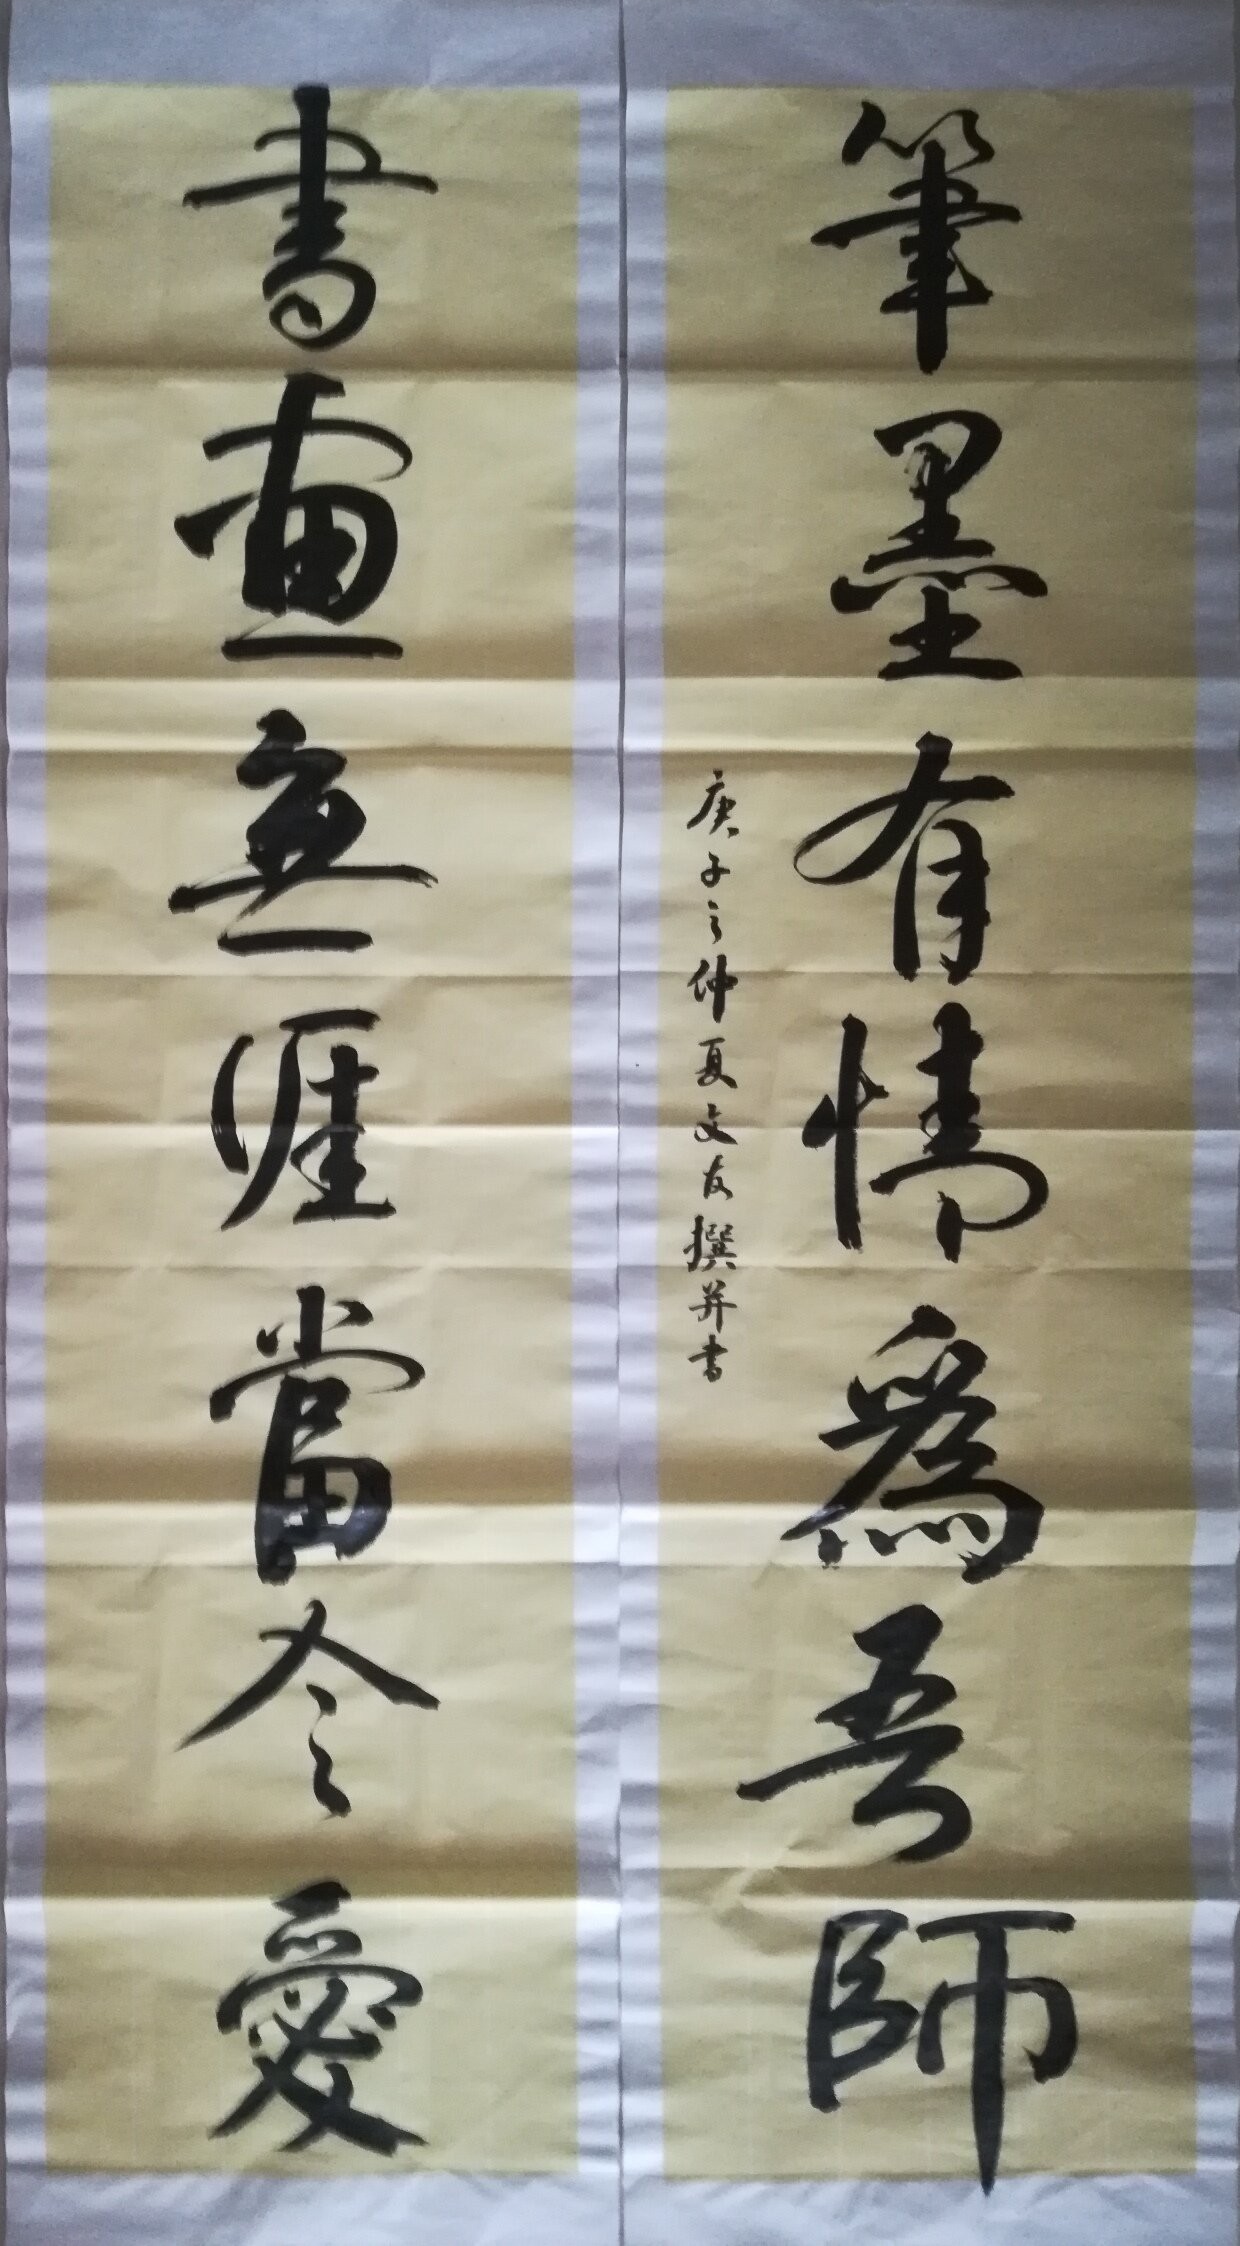 筆墨有情為吾師
庚子之仲夏文友撰并書
書畫無涯當令愛